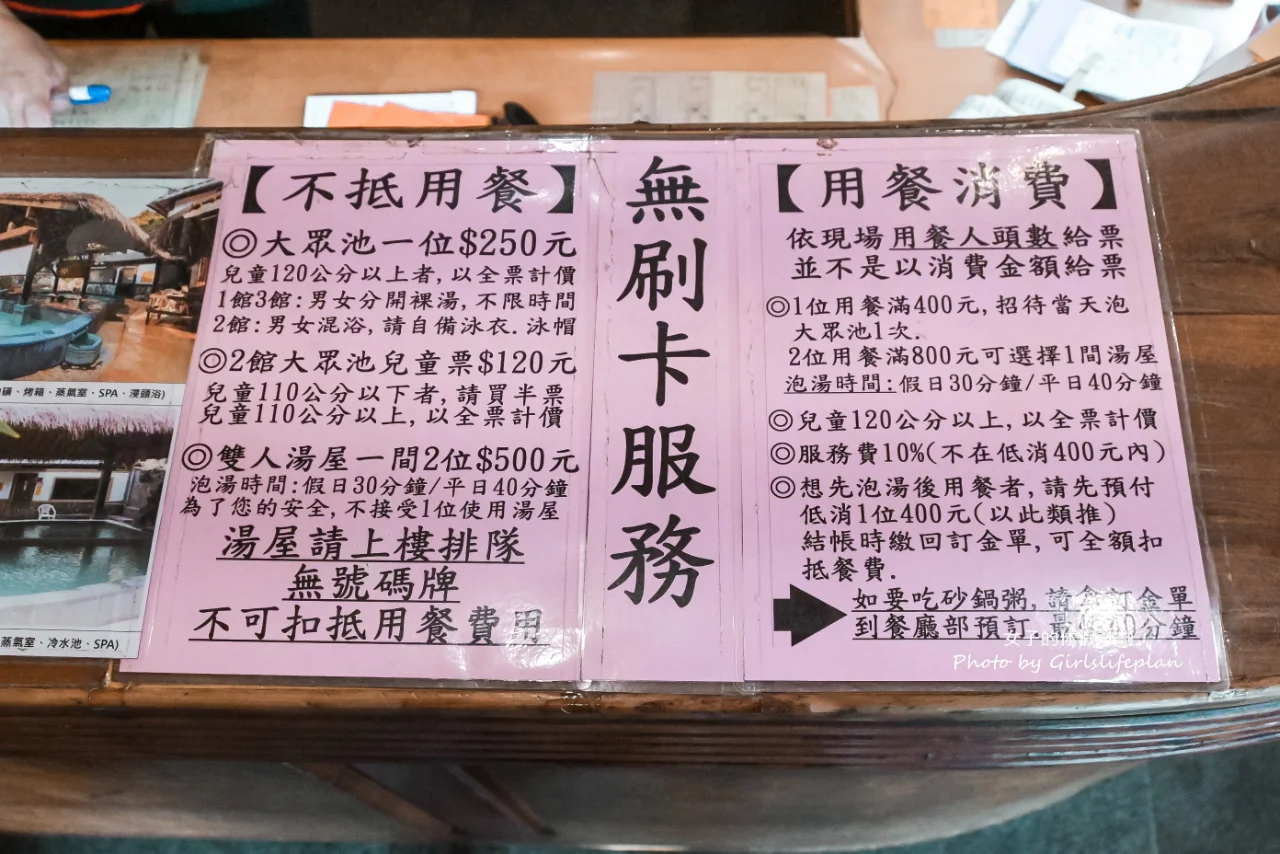 【不抵用餐】
◎大眾池一位$250元
兒童120公分以上者,以全票計價
1館3館:男女分開裸湯,不限時間
2館:男女混浴,請自備泳衣.泳帽
◎2館大眾池兒童票$120元
兒童110公分以下者,請買半票
兒童110公分以上,以全票計價
◎雙人湯屋一間2位$500元
泡湯時間:假日30分鐘/平日40分鐘
為了您的安全,不接受1位使用湯屋
湯屋請上樓排隊
無號碼牌
不可扣抵用餐費用
無刷卡服務
【用餐消費】
依現場用餐人頭數給票
並不是以消費金額給票
◎1位用餐滿400元,招待當天泡
大眾池1次.
2位用餐滿800元可選擇1間湯屋
泡湯時間:假日30分鐘/平日40分鐘
◎兒童120公分以上,以全票計價
◎服務費10%(不在低消400元內)
◎想先泡湯後用餐者,請先預付
低消1位400元(以此類推)
結帳時繳回訂金單,可全額扣
抵餐費.
如要吃砂鍋粥,請拿訂金單
到餐廳部預訂,40分鐘
烤箱、蒸氣室、SPA、浸頭浴)
蒸氣室、冷水池、SPA)
女子的休
Photo by Girlslifeplan